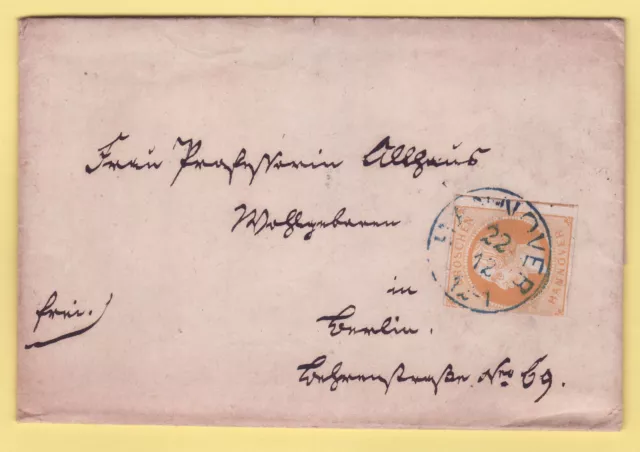 Frau Professorin Althaus
Wohlgeboren
in
frei.
Berlin.
Behrenstraße No 69.
HANNOVER
22
12
GROSCHEN
HANNOVER